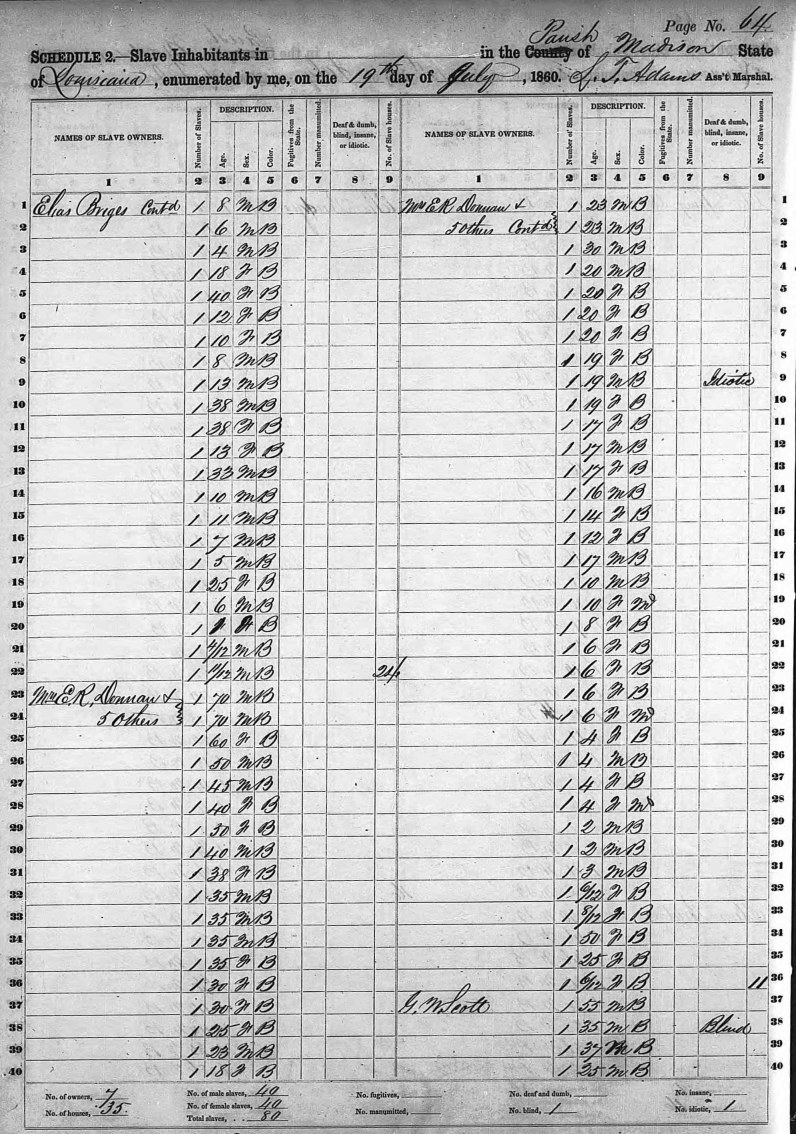 Page No. 64
SCHEDULE 2.—Slave Inhabitants in in the County Parish of Madison State
of Louisiana, enumerated by me, on the 19th day of July, 1860. L. T. Adams Ass't Marshal.
NAMES OF SLAVE OWNERS. Number of Slaves. DESCRIPTION. Age. Sex. Color. Fugitives from the State. Number manumitted. Deaf & dumb, blind, insane, or idiotic. No. of Slave houses. NAMES OF SLAVE OWNERS. Number of Slaves. DESCRIPTION. Age. Sex. Color. Fugitives from the State. Number manumitted. Deaf & dumb, blind, insane, or idiotic. No. of Slave houses.
1 2 3 4 5 6 7 8 9 1 2 3 4 5 6 7 8 9
1 Elias Briges Contd 1 8 M B Mrs E R Donnan & 1 23 M B 1
2 1 6 M B 5 Others Contd 1 23 M B 2
3 1 4 M B 1 30 M B 3
4 1 18 F B 1 20 M B 4
5 1 40 F B 1 20 F B 5
6 1 12 F B 1 20 F B 6
7 1 10 F B 1 20 F B 7
8 1 8 M B 1 19 F B 8
9 1 13 M B 1 19 M B Idiotic 9
10 1 38 M B 1 19 F B 10
11 1 38 F B 1 17 F B 11
12 1 13 F B 1 17 M B 12
13 1 33 M B 1 17 F B 13
14 1 10 M B 1 16 M B 14
15 1 11 M B 1 14 F B 15
16 1 7 M B 1 12 F B 16
17 1 5 M B 1 17 M B 17
18 1 25 F B 1 10 M B 18
19 1 6 M B 1 10 F M 19
20 1 F B 1 8 F B 20
21 1 M B 1 6 F B 21
22 1 M B 24 1 6 F B 22
23 Mrs E. R. Donnan & 1 70 M B 1 6 F B 23
24 5 Others 1 70 M B 1 6 F M 24
25 1 60 F B 1 4 F B 25
26 1 50 M B 1 4 M B 26
27 1 45 M B 1 4 F B 27
28 1 40 F B 1 4 F M 28
29 1 50 F B 1 2 M B 29
30 1 40 M B 1 2 M B 30
31 1 38 F B 1 3 M B 31
32 1 35 M B 1 6/12 F B 32
33 1 35 M B 1 8/12 F B 33
34 1 35 M B 1 50 F B 34
35 1 35 F B 1 25 F B 35
36 1 30 F B 1 6/12 F B 11 36
37 1 30 F B G. W Scott 1 55 M B 37
38 1 25 F B 1 35 M B Blind 38
39 1 23 M B 1 37 M B 39
40 1 18 F B 1 25 M B 40
No. of owners, 7 No. of male slaves, 40 No. fugitives, No. deaf and dumb, No. insane,
No. of houses, 35. No. of female slaves, 40 No. manumitted, No. blind, 1 No. idiotic, 1
Total slaves, 80